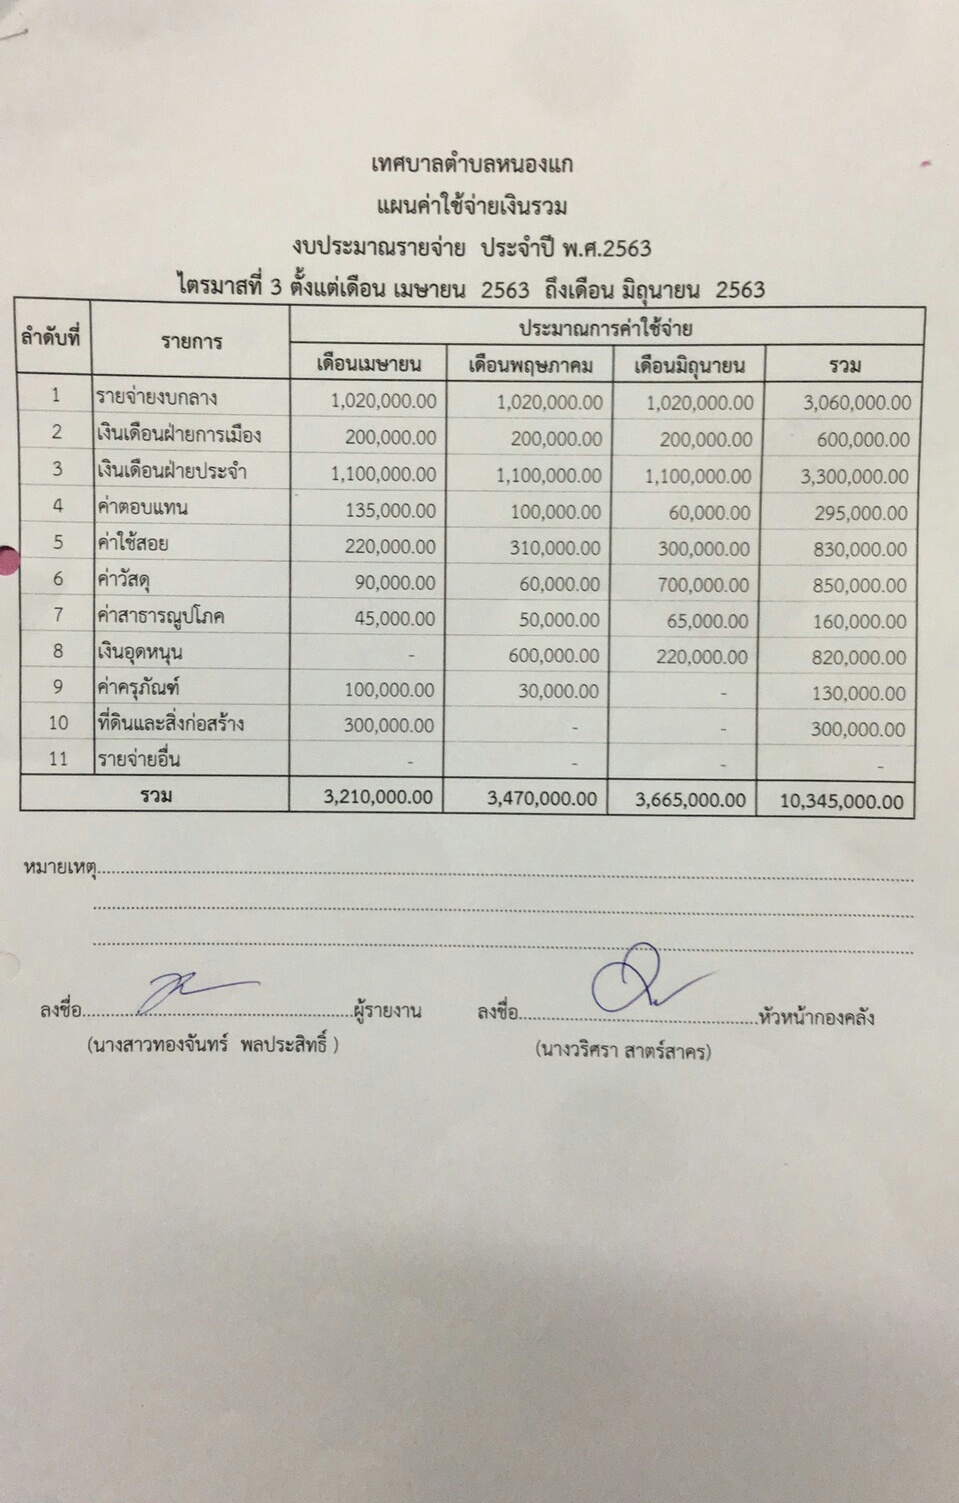 เทศบาลตำบลหนองแก
แผนค่าใช้จ่ายเงินรวม
งบประมาณรายจ่าย ประจำปี พ.ศ.2563
ไตรมาสที่ 3 ตั้งแต่เดือน เมษายน 2563 ถึงเดือน มิถุนายน 2563
ลำดับที่ รายการ ประมาณการค่าใช้จ่าย
เดือนเมษายน เดือนพฤษภาคม เดือนมิถุนายน รวม
1 รายจ่ายงบกลาง 1,020,000.00 1,020,000.00 1,020,000.00 3,060,000.00
2 เงินเดือนฝ่ายการเมือง 200,000.00 200,000.00 200,000.00 600,000.00
3 เงินเดือนฝ่ายประจำ 1,100,000.00 1,100,000.00 1,100,000.00 3,300,000.00
4 ค่าตอบแทน 135,000.00 100,000.00 60,000.00 295,000.00
5 ค่าใช้สอย 220,000.00 310,000.00 300,000.00 830,000.00
6 ค่าวัสดุ 90,000.00 60,000.00 700,000.00 850,000.00
7 ค่าสาธารณูปโภค 45,000.00 50,000.00 65,000.00 160,000.00
8 เงินอุดหนุน - 600,000.00 220,000.00 820,000.00
9 ค่าครุภัณฑ์ 100,000.00 30,000.00 - 130,000.00
10 ที่ดินและสิ่งก่อสร้าง 300,000.00 - - 300,000.00
11 รายจ่ายอื่น - - - -
รวม 3,210,000.00 3,470,000.00 3,665,000.00 10,345,000.00
หมายเหตุ
ลงชื่อ ผู้รายงาน ลงชื่อ หัวหน้ากองคลัง
(นางสาวทองจันทร์ พลประสิทธิ์ ) (นางวริศรา สาตร์สาคร)